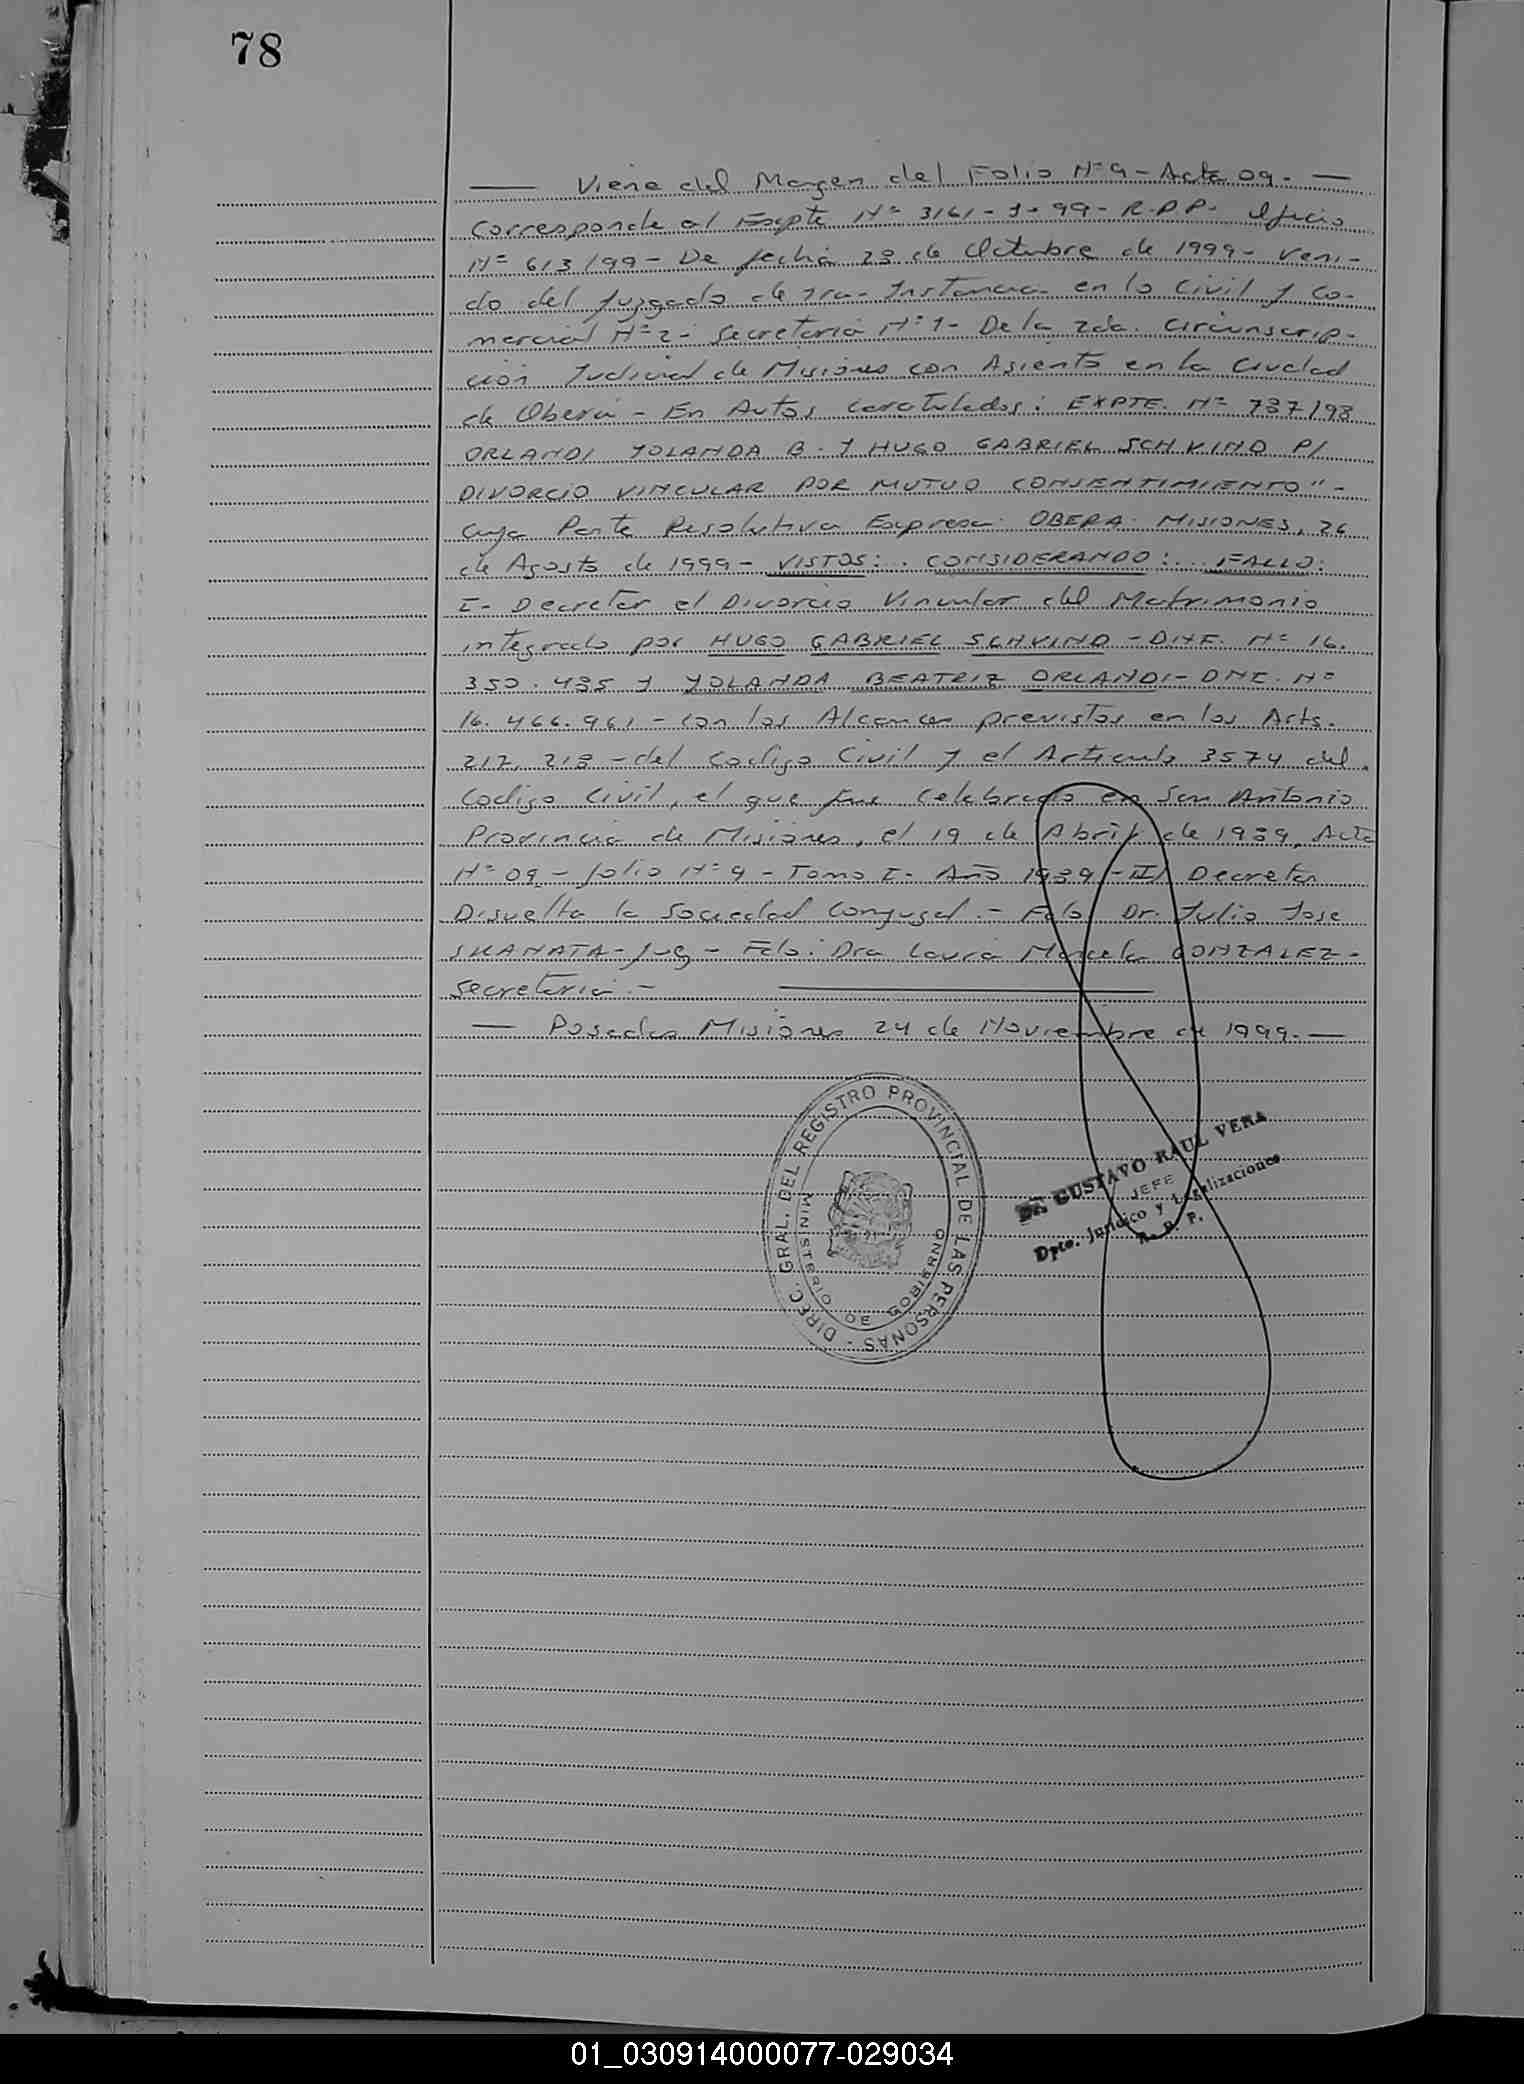 78
— Viene del Margen del Folio Nº 9 - Acta 09. —
Corresponde al Expte Nº 3161-J-99- R.P.P. Oficio
Nº 613/99 - De fecha 28 de Octubre de 1999- Veni-
do del Juzgado de 1ra. Instancia en lo Civil y Co-
mercial Nº 2 - Secretaria Nº 1- De la 2da. Circunscrip-
ción Judicial de Misiones con Asiento en la Ciudad
de Oberá - En Autos Caratulados: EXPTE. Nº 737/98
ORLANDI YOLANDA B. Y HUGO GABRIEL SCHVIND P/
DIVORCIO VINCULAR POR MUTUO CONSENTIMIENTO" -
Cuya Parte Resolutiva Expresa: OBERA. MISIONES, 26
de Agosto de 1999 - VISTOS: . CONSIDERANDO: ... FALLO:
I- Decretar el Divorcio Vincular del Matrimonio
integrado por HUGO GABRIEL SCHVIND - DNI. Nº 16.
350.485 y YOLANDA BEATRIZ ORLANDI - DNI. Nº
16.466.961 - con los Alcances previstos en los Arts.
217, 218 - del Codigo Civil y el Articulo 3574 del
Codigo Civil, el que fue Celebrado en San Antonio
Provincia de Misiones, el 19 de Abril de 1989, Acta
Nº 09 - folio Nº 9 - Tomo I - Año 1989 - II) Decretar
Disuelta la Sociedad Conyugal. - Fdo. Dr. Julio Jose
SKANATA - Juez - Fdo. Dra Laura Marcela GONZALEZ -
Secretaria. -
— Posadas Misiones 24 de Noviembre de 1999. —
DIREC. GRAL. DEL REGISTRO PROVINCIAL DE LAS PERSONAS -
MINISTERIO DE GOBIERNO
Dr. GUSTAVO RAUL VERA
JEFE
Dpto. Jurídico y Legalizaciones
R. P. P.
01_030914000077-029034